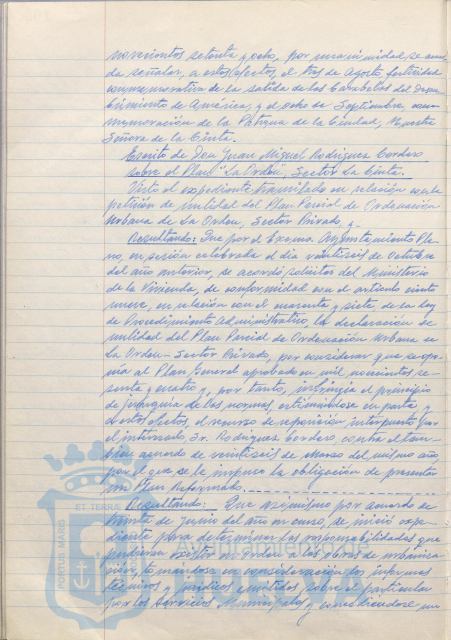 novecientos setenta y ocho, por unanimidad se acuer-
da señalar, a estos efectos, el tres de Agosto, festividad
conmemorativa de la salida de las Carabelas del Descu-
brimiento de América, y el ocho de Septiembre, con-
memoración de la Patrona de la Ciudad, Nuestra
Señora de la Cinta.
Escrito de Don Juan Miguel Rodríguez Cordero
sobre el Plan "La Orden", Sector La Cinta.
Visto el expediente tramitado en relación con la
petición de nulidad del Plan Parcial de Ordenación
Urbana de La Orden, Sector Privado, y
Resultando: Que por el Excmo. Ayuntamiento Ple-
no, en sesión celebrada el día veintiseis de Octubre
del año anterior, se acordó solicitar del Ministerio
de la Vivienda, de conformidad con el artículo ciento
nueve, en relación con el cuarenta y siete, de la Ley
de Procedimiento Administrativo, la declaración de
nulidad del Plan Parcial de Ordenación Urbana de
La Orden - Sector Privado, por considerar que se opo-
nía al Plan General aprobado en mil novecientos se-
senta y cuatro y, por tanto, infringía el principio
de jerarquía de las normas, estimándose en parte y
a estos efectos, el recurso de reposición interpuesto por
el interesado, Sr. Rodríguez Cordero, contra el tam-
bién acuerdo de veintiseis de Marzo del mismo año
por el que se le impuso la obligación de presentar
un Plan Reformado.
Resultando: Que asimismo por acuerdo de
treinta de Junio del año en curso, se inició expe-
diente para determinar las responsabilidades que
pudieran existir en orden a las obras de urbaniza-
ción, tomándose en consideración los informes
técnicos y jurídicos emitidos sobre el particular
por los Servicios Municipales y concediéndose un
ET TERRAE
PORTUS MARIS